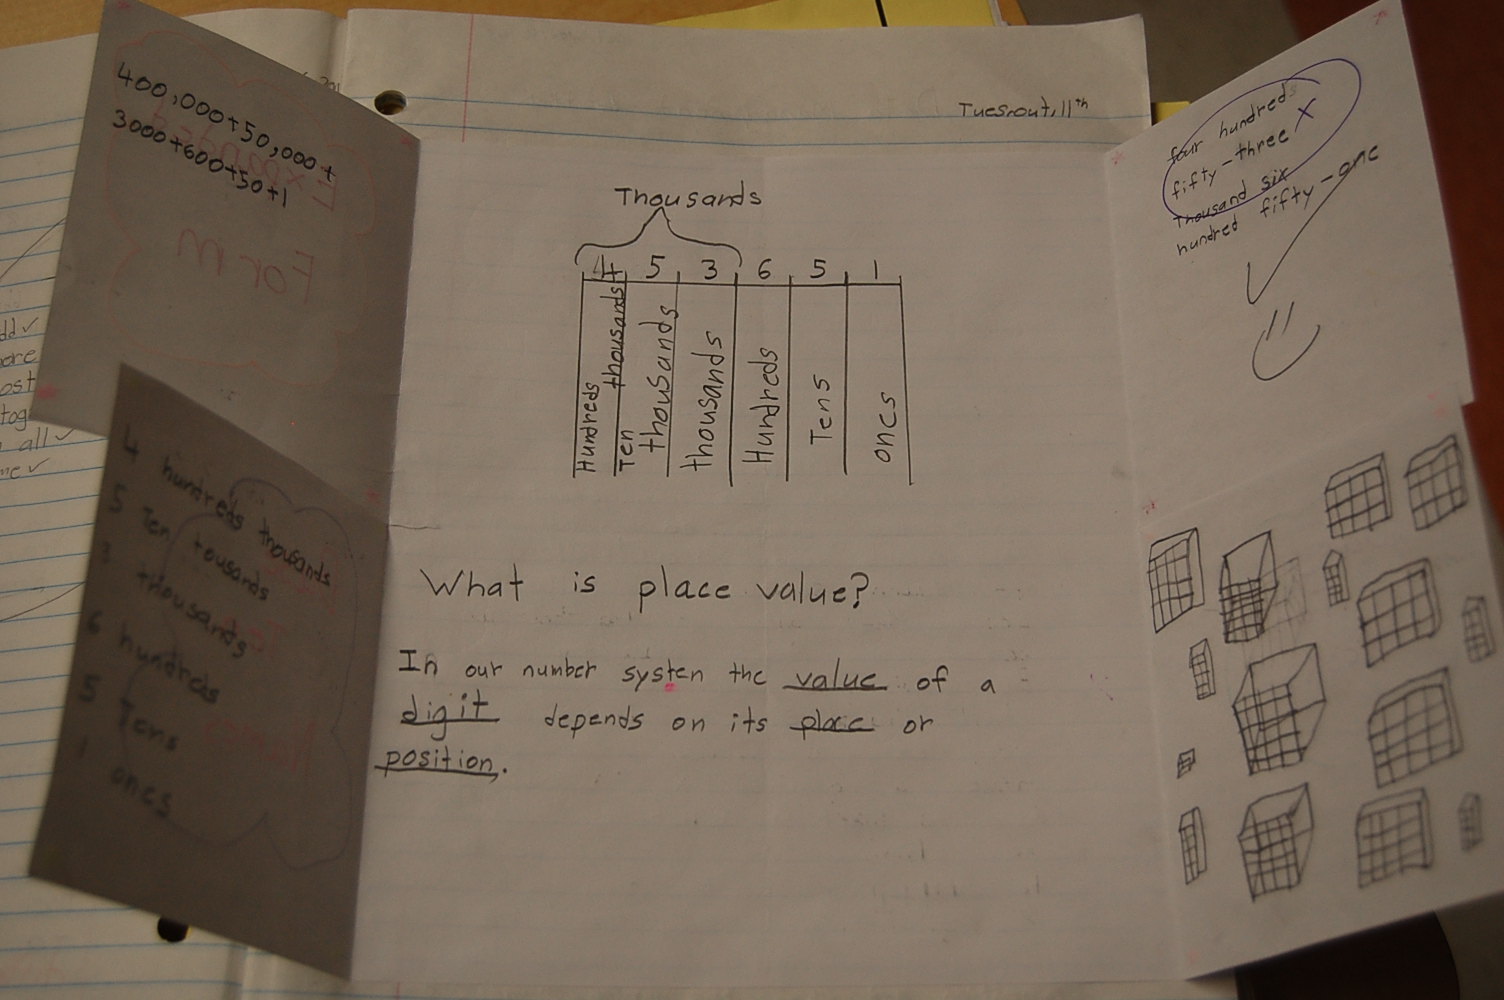 400,000+50,000+
3000+600+50+1
Expanded
Form
4 hundreds thousands
5 Ten tousands
3 thousands
6 hundreds
5 Tens
1 ones
all
Thousands
4 5 3 6 5 1
Hundreds thousands
Ten thousands
thousands
Hundreds
Tens
ones
What is place value?
In our number systen the value of a
digit depends on its place or
position.
four hundreds
fifty-three X
Thousand six
hundred fifty-one